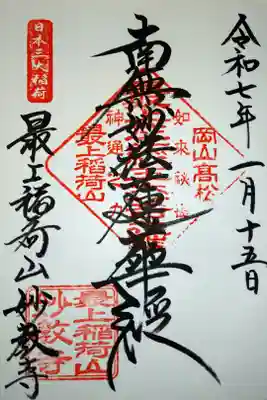 令和七年 一月十五日
岡山高松
如来秘密
神通之力
最上稲荷山
南無妙法蓮華経
日本三大稲荷
最上稲荷山 妙教寺
最上稲荷山
妙教寺